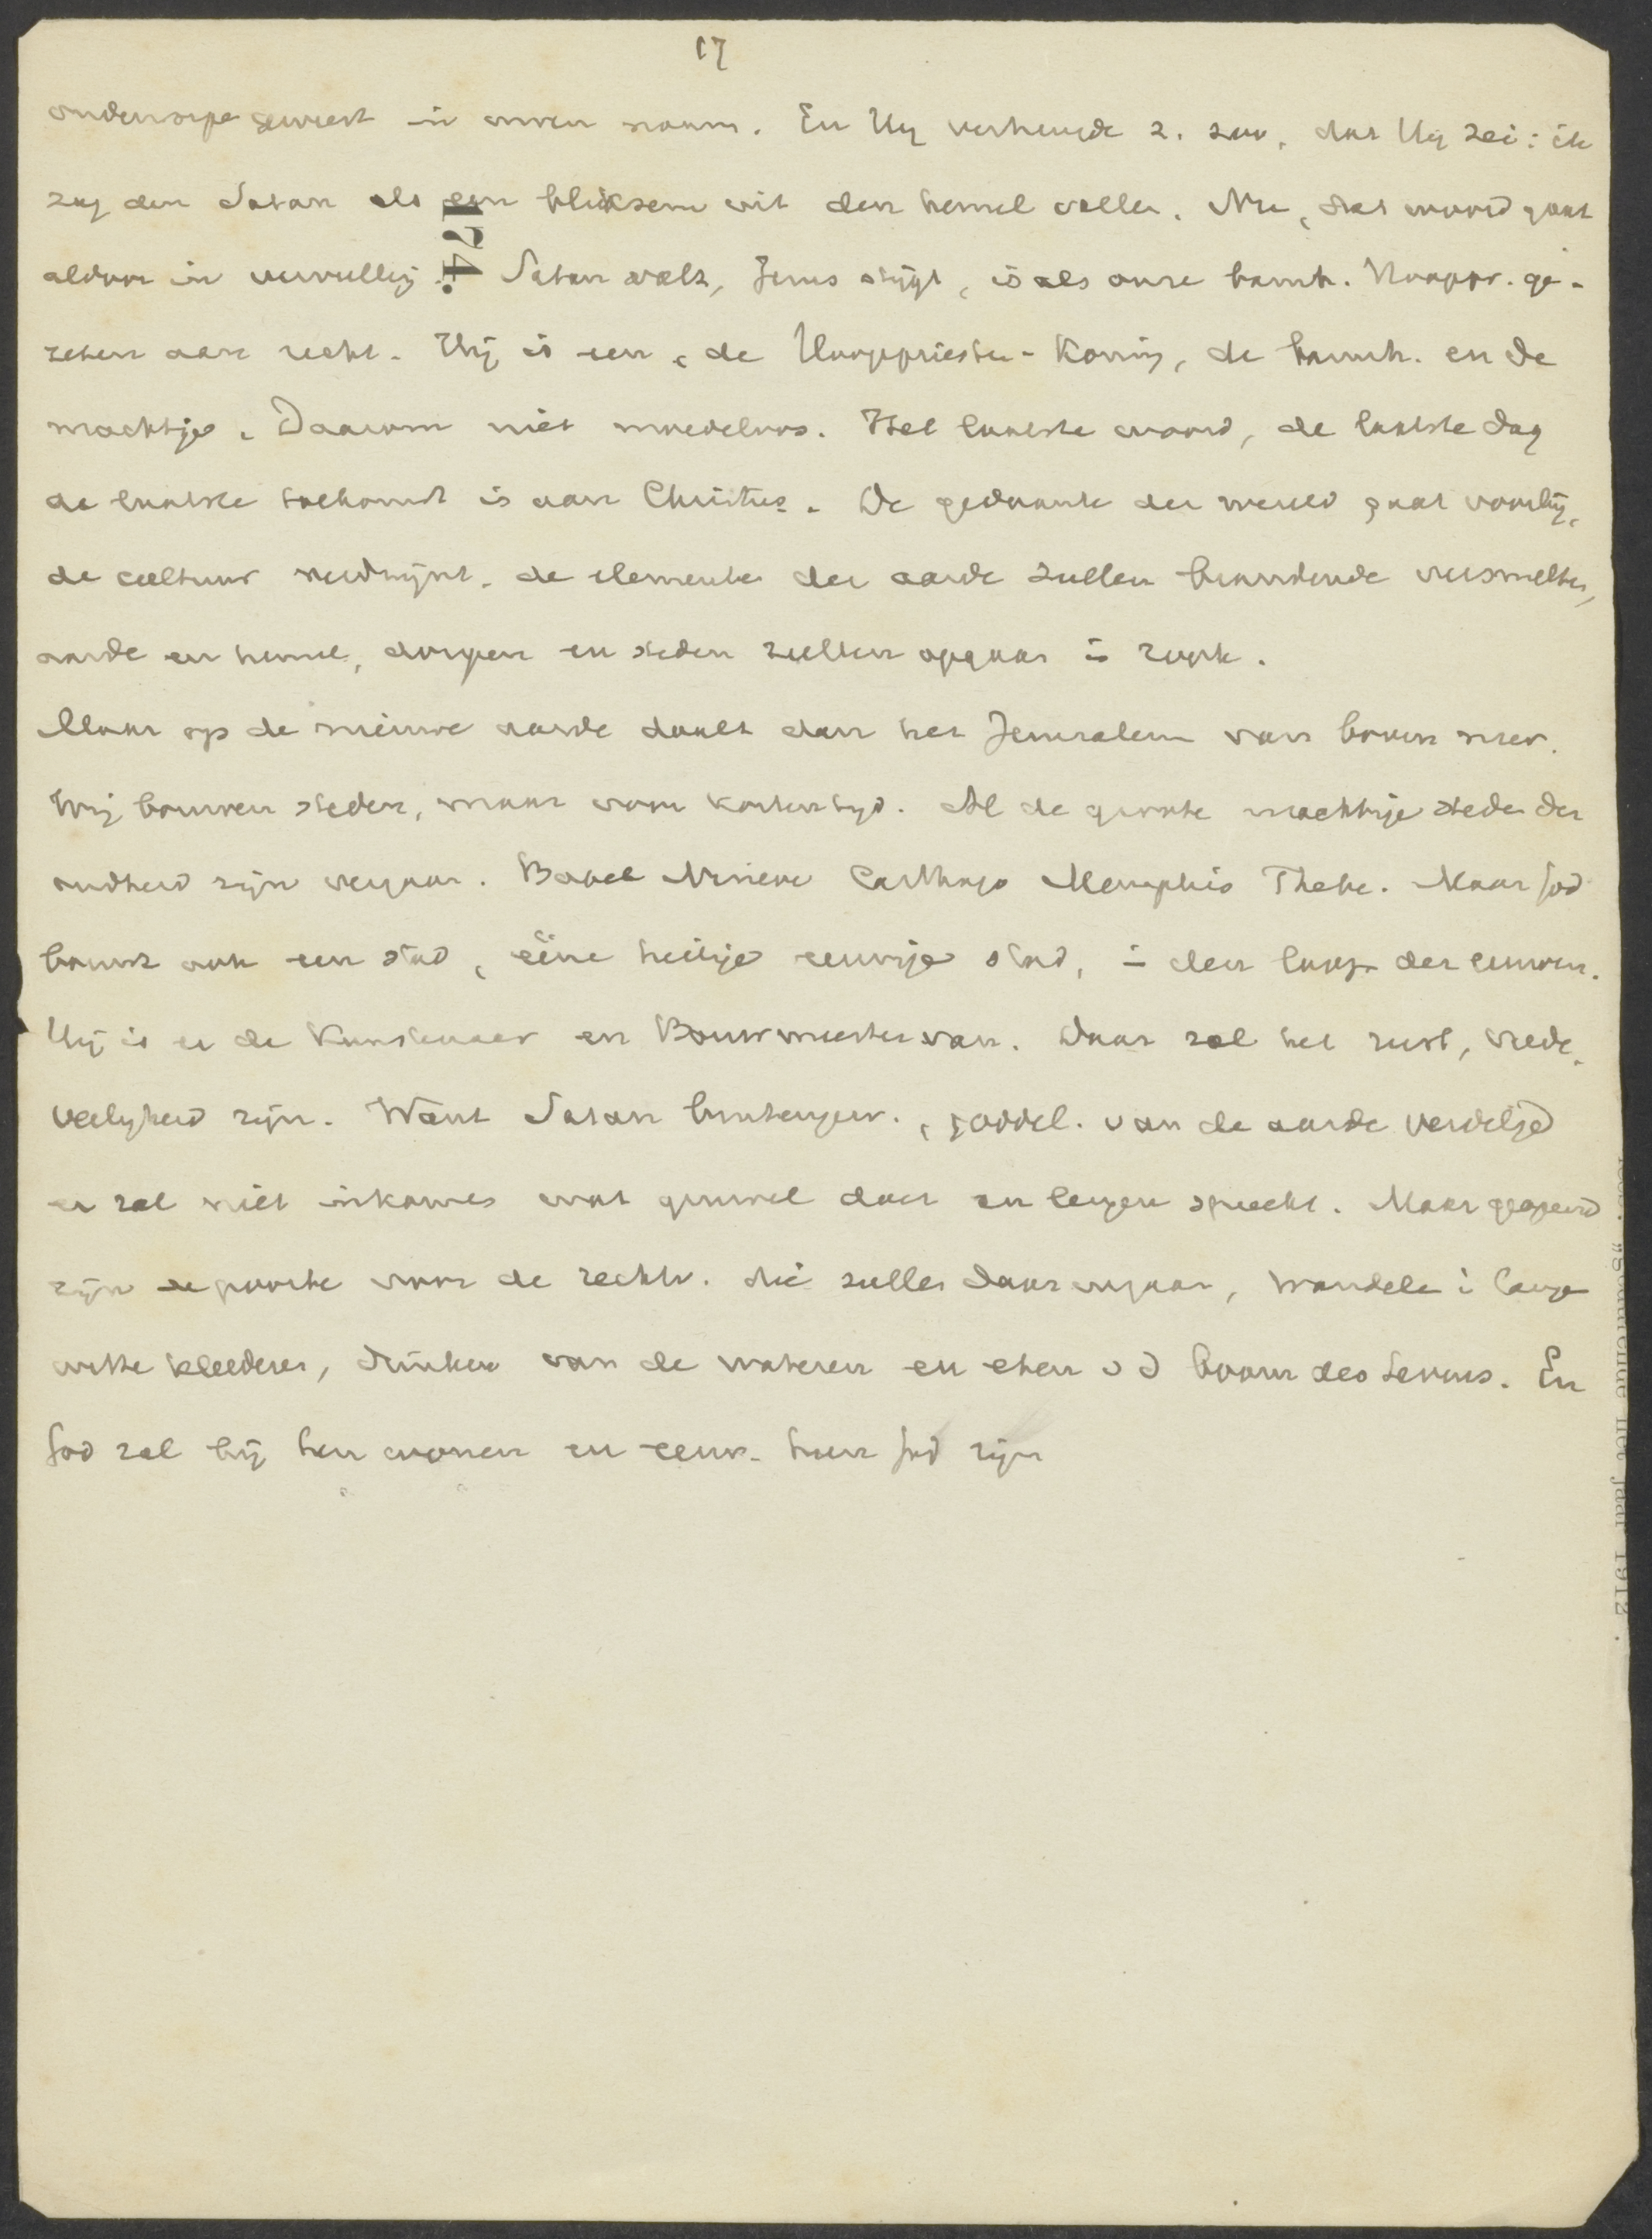 17
onderworpen geweest in uwen naam. En Hij verheugde z. zoo, dat Hij zei: ik
zag den Satan als een bliksem uit den hemel vallen. Nu, dat woord gaat
aldoor in vervulling. Satan valt, Jezus stijgt, is als onze barmh. Hoogpr. ge-
zeten aan recht. Hij is een, de Hoogepriester-Koning, de barmh. en de
machtige. Daarom niet moedeloos. Het laatste woord, de laatste dag
de laatste toekomst is aan Christus. De gedaante der wereld gaat voorbij,
de cultuur verdwijnt. de elementen der aarde zullen brandende versmelten,
aarde en hemel, dorpen en steden zullen opgaan in rook.
Maar op de nieuwe aarde daalt dan het Jeruzalem van boven neer.
Wij bouwen steden, maar voor korten tijd. Al de groote machtige steden der
oudheid zijn vergaan. Babel Nineve Carthago Memphis Thebe. Maar God
bouwt ook een stad, eéne heilige eeuwige stad, in den loop der eeuwen.
Hij is er de Kunstenaar en Bouwmeester van. Daar zal het rust, vrede,
veiligheid zijn. Want Satan buitengew., goddel. van de aarde verdelgd
er zal niet inkomen wat gruwel doet en leugen spreekt. Maar geopend
zijn de poorten voor de rechtv. die zullen daar ingaan, wandelen in lange
witte kleederen, drinken van de wateren en eten v d boom des levens. En
God zal bij hen wonen en eeuw. hun God zijn
124.
"Gedurende het jaar 1912".